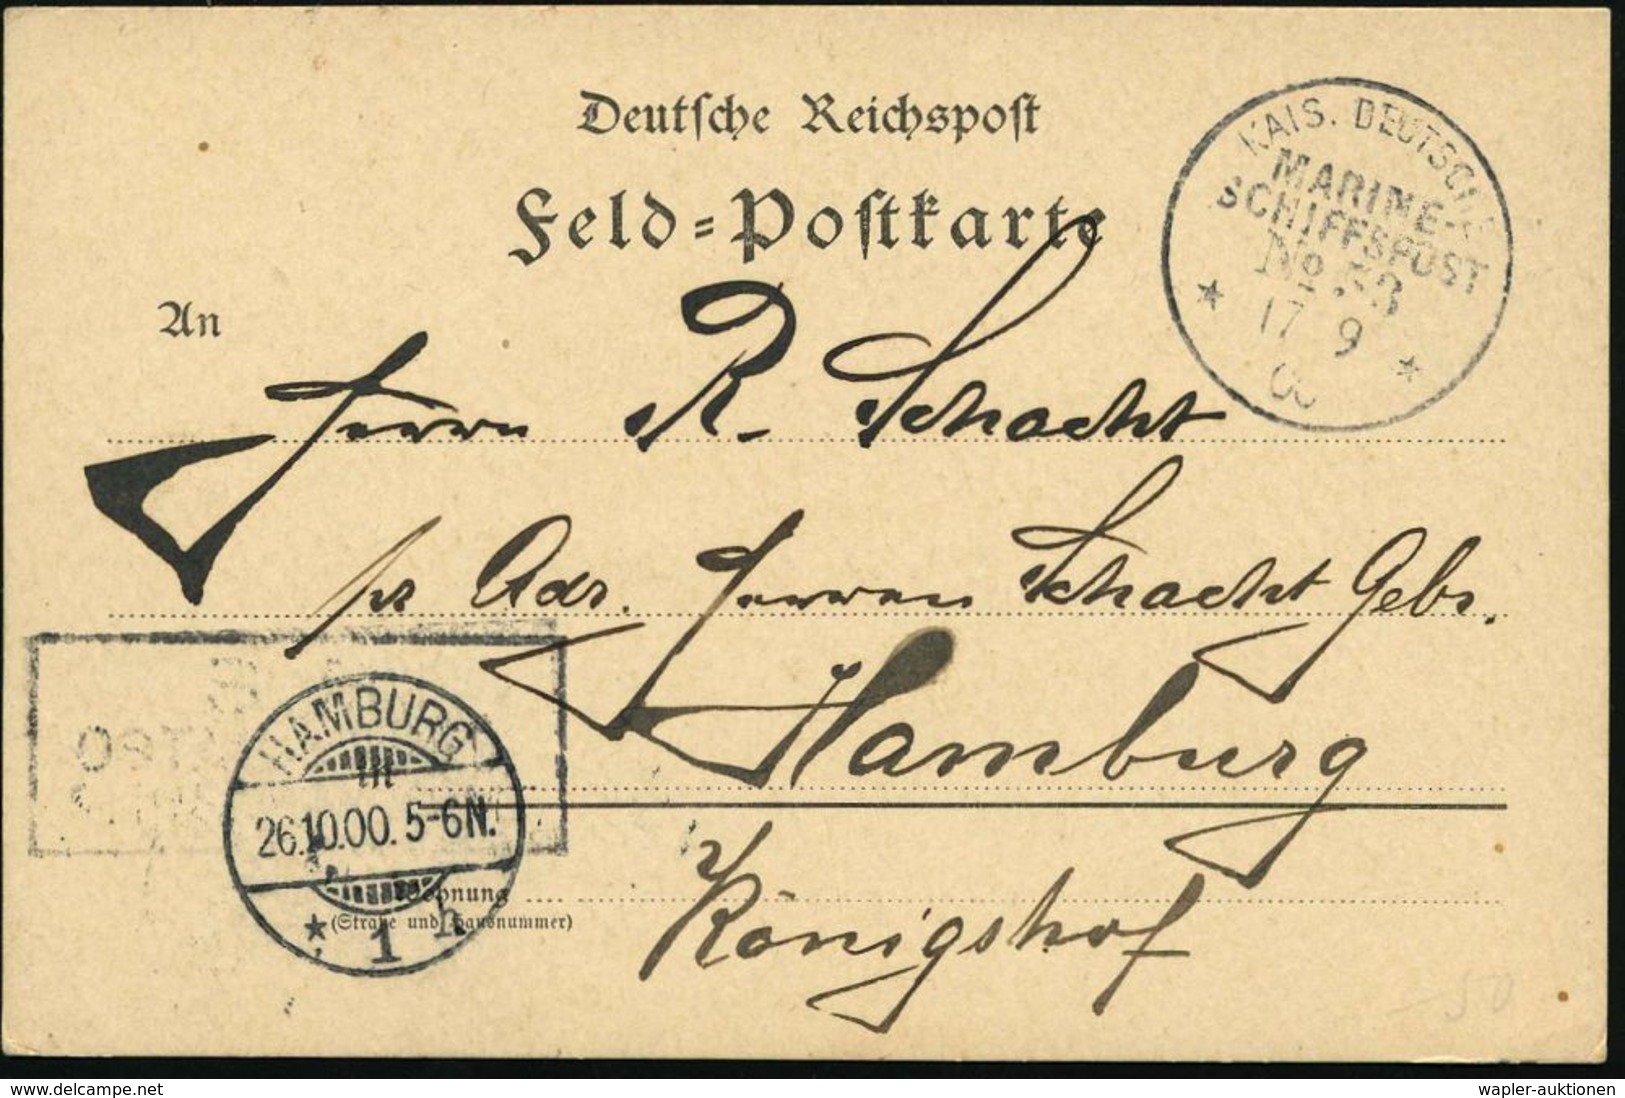 Deutsche Reichspost
Feld=Postkarte
KAIS. DEUTSCHE
MARINE-
SCHIFFSPOST
No. 53
17 9
00
An
Herrn R. Schacht
pr Adr. Herren Schacht Gebr.
Hamburg
HAMBURG
26.10.00. 5-6N.
* 1 h
Wohnung
(Straße und Hausnummer)
Königshof
50
www.delcampe.net
wapler-auktionen